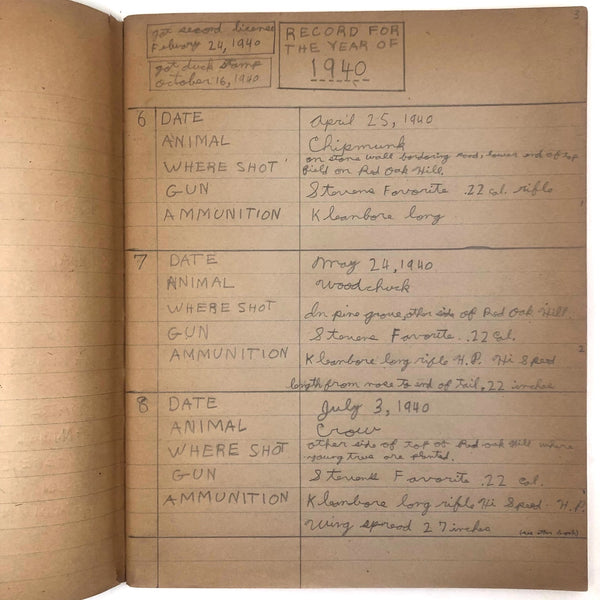 3
got second license
February 24, 1940
got duck stamp
October 16, 1940
RECORD FOR
THE YEAR OF
1940
6 DATE April 25, 1940
ANIMAL Chipmunk
WHERE SHOT on stone wall bordering road, lower end of top
field on Red Oak Hill.
GUN Stevens Favorite .22 cal. rifle
AMMUNITION Kleanbore long
7 DATE May 24, 1940
ANIMAL Woodchuck
WHERE SHOT In pine grove, other side of Red Oak Hill.
GUN Stevens Favorite .22 Cal.
AMMUNITION Kleanbore long rifle H.P. Hi Speed
length from nose to end of tail, 22 inches
8 DATE July 3, 1940
ANIMAL Crow
WHERE SHOT other side of top of Red oak Hill where
young trees are planted.
GUN Stevens Favorite .22 Cal.
AMMUNITION Kleanbore long rifle Hi Speed H.P.
Wing spread 27 inches